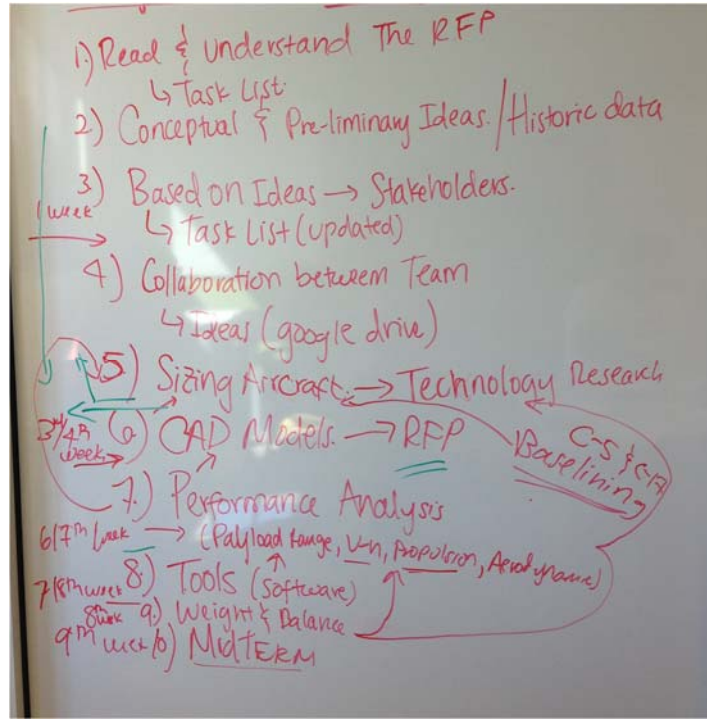 1.) Read & understand The RFP
↳ Task List.
2) Conceptual & Pre-liminary Ideas. / Historic data
3) Based on Ideas → Stakeholders.
1 week
↳ Task List (updated)
4) Collaboration between Team
↳ Ideas (google drive)
5) Sizing Aircraft. → Technology Research
3rd/4th week
6) CAD Models. → RFP
C-5 & C-17
Baselining
7.) Performance Analysis
6/7th week → (Payload Range, V-n, Propulsion, Aerodynamic)
7/8th week 8.) Tools (Software)
8th week 9.) Weight & Balance
9th week 10) MIDTERM